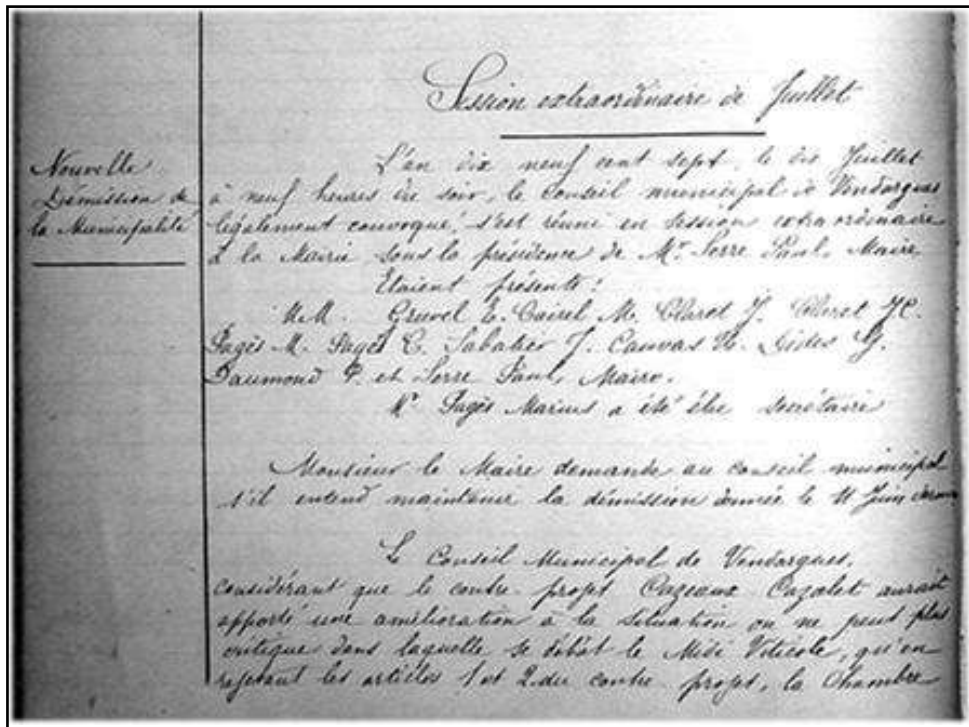 Session extraordinaire de Juillet
Nouvelle
Démission de
la Municipalité
L'an dix neuf cent sept, le dix Juillet
à neuf heures du soir, le Conseil municipal de Vendargues
légalement convoqué, s'est réuni en session extraordinaire
à la Mairie sous la présidence de Mr. Serre Paul, Maire.
Etaient présents :
M.M. Gruvel E. Cairel M. Claret J. Claret
Pagès M. Pagès C. Sabatier J. Canvas
Daumond P. et Serre Paul, Maire.
Mr Pagès Marius a été élu secrétaire
Monsieur le Maire demande au conseil municipal
s'il entend maintenir la démission donnée le 11 Juin
Le Conseil Municipal de Vendargues,
considérant que le contre projet Cazeaux Cazalet aurait
apporté une amélioration à la situation on ne peut plus
critique dans laquelle se débat le Midi Viticole, qu'en
rejetant les articles 1 et 2 du contre projet, la Chambre